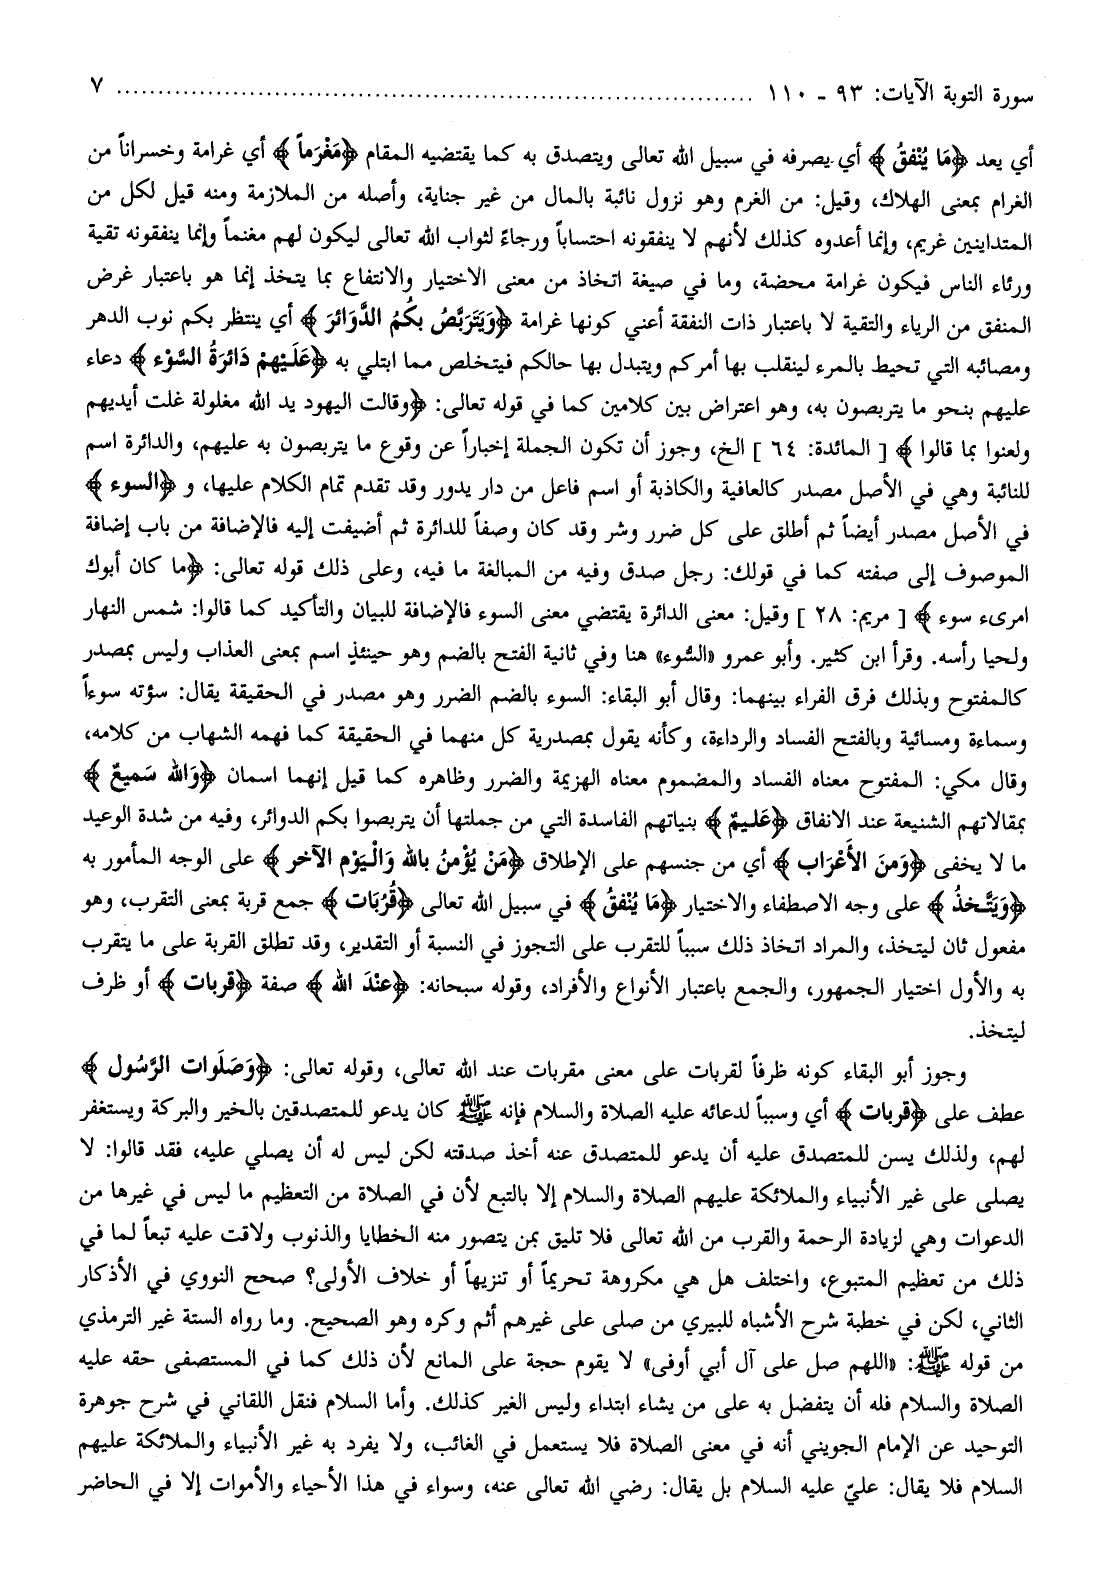 سورة التوبة الآيات: ٩٣ - ١١٠ ............................................................ ٧
أي يعد ﴿مَا يُنْفقُ﴾ أي يصرفه في سبيل الله تعالى ويتصدق به كما يقتضيه المقام ﴿مَغْرَماً﴾ أي غرامة وخسراناً من
الغرام بمعنى الهلاك، وقيل: من الغرم وهو نزول نائبة بالمال من غير جناية، وأصله من الملازمة ومنه قيل لكل من
المتداينين غريم، وإنما أعدوه كذلك لأنهم لا ينفقونه احتساباً ورجاءً لثواب الله تعالى ليكون لهم مغنماً وإنما ينفقونه تقية
ورئاء الناس فيكون غرامة محضة، وما في صيغة اتخاذ من معنى الاختيار والانتفاع بما يتخذ إنما هو باعتبار غرض
المنفق من الرياء والتقية لا باعتبار ذات النفقة أعني كونها غرامة ﴿وَيَتَرَبَّصُ بكُمُ الدَّوَائرَ﴾ أي ينتظر بكم نوب الدهر
ومصائبه التي تحيط بالمرء لينقلب بها أمركم ويتبدل بها حالكم فيتخلص مما ابتلي به ﴿عَلَيْهمْ دَائرَةُ السَّوْء﴾ دعاء
عليهم بنحو ما يتربصون به، وهو اعتراض بين كلامين كما في قوله تعالى: ﴿وقالت اليهود يد الله مغلولة غلت أيديهم
ولعنوا بما قالوا﴾ [ المائدة: ٦٤ ] الخ، وجوز أن تكون الجملة إخباراً عن وقوع ما يتربصون به عليهم، والدائرة اسم
للنائبة وهي في الأصل مصدر كالعافية والكاذبة أو اسم فاعل من دار يدور وقد تقدم تمام الكلام عليها، و ﴿السوء﴾
في الأصل مصدر أيضاً ثم أطلق على كل ضرر وشر وقد كان وصفاً للدائرة ثم أضيفت إليه فالإضافة من باب إضافة
الموصوف إلى صفته كما في قولك: رجل صدق وفيه من المبالغة ما فيه، وعلى ذلك قوله تعالى: ﴿ما كان أبوك
امرىء سوء﴾ [ مريم: ٢٨ ] وقيل: معنى الدائرة يقتضي معنى السوء فالإضافة للبيان والتأكيد كما قالوا: شمس النهار
ولحيا رأسه. وقرأ ابن كثير. وأبو عمرو «السُّوء» هنا وفي ثانية الفتح بالضم وهو حينئذٍ اسم بمعنى العذاب وليس بمصدر
كالمفتوح وبذلك فرق الفراء بينهما: وقال أبو البقاء: السوء بالضم الضرر وهو مصدر في الحقيقة يقال: سؤته سوءاً
وسماءة ومسائية وبالفتح الفساد والرداءة، وكأنه يقول بمصدرية كل منهما في الحقيقة كما فهمه الشهاب من كلامه،
وقال مكي: المفتوح معناه الفساد والمضموم معناه الهزيمة والضرر وظاهره كما قيل إنهما اسمان ﴿وَالله سَميعٌ﴾
بمقالاتهم الشنيعة عند الانفاق ﴿عَليمٌ﴾ بنياتهم الفاسدة التي من جملتها أن يتربصوا بكم الدوائر، وفيه من شدة الوعيد
ما لا يخفى ﴿وَمنَ الأَعْرَاب﴾ أي من جنسهم على الإطلاق ﴿مَنْ يُؤْمنُ بالله وَالْيَوْم الآخر﴾ على الوجه المأمور به
﴿وَيَتَّخذُ﴾ على وجه الاصطفاء والاختيار ﴿مَا يُنْفقُ﴾ في سبيل الله تعالى ﴿قُرُبَات﴾ جمع قربة بمعنى التقرب، وهو
مفعول ثان ليتخذ، والمراد اتخاذ ذلك سبباً للتقرب على التجوز في النسبة أو التقدير، وقد تطلق القربة على ما يتقرب
به والأول اختيار الجمهور، والجمع باعتبار الأنواع والأفراد، وقوله سبحانه: ﴿عنْدَ الله﴾ صفة ﴿قربات﴾ أو ظرف
ليتخذ.
وجوز أبو البقاء كونه ظرفاً لقربات على معنى مقربات عند الله تعالى، وقوله تعالى: ﴿وَصَلَوات الرَّسُول﴾
عطف على ﴿قربات﴾ أي وسبباً لدعائه عليه الصلاة والسلام فإنه ﷺ كان يدعو للمتصدقين بالخير والبركة ويستغفر
لهم، ولذلك يسن للمتصدق عليه أن يدعو للمتصدق عنه أخذ صدقته لكن ليس له أن يصلي عليه، فقد قالوا: لا
يصلى على غير الأنبياء والملائكة عليهم الصلاة والسلام إلا بالتبع لأن في الصلاة من التعظيم ما ليس في غيرها من
الدعوات وهي لزيادة الرحمة والقرب من الله تعالى فلا تليق بمن يتصور منه الخطايا والذنوب ولاقت عليه تبعاً لما في
ذلك من تعظيم المتبوع، واختلف هل هي مكروهة تحريماً أو تنزيهاً أو خلاف الأولى؟ صحح النووي في الأذكار
الثاني، لكن في خطبة شرح الأشباه للبيري من صلى على غيرهم أثم وكره وهو الصحيح. وما رواه الستة غير الترمذي
من قوله ﷺ: «اللهم صل على آل أبي أوفى» لا يقوم حجة على المانع لأن ذلك كما في المستصفى حقه عليه
الصلاة والسلام فله أن يتفضل به على من يشاء ابتداء وليس الغير كذلك. وأما السلام فنقل اللقاني في شرح جوهرة
التوحيد عن الإمام الجويني أنه في معنى الصلاة فلا يستعمل في الغائب، ولا يفرد به غير الأنبياء والملائكة عليهم
السلام فلا يقال: عليّ عليه السلام بل يقال: رضي الله تعالى عنه، وسواء في هذا الأحياء والأموات إلا في الحاضر